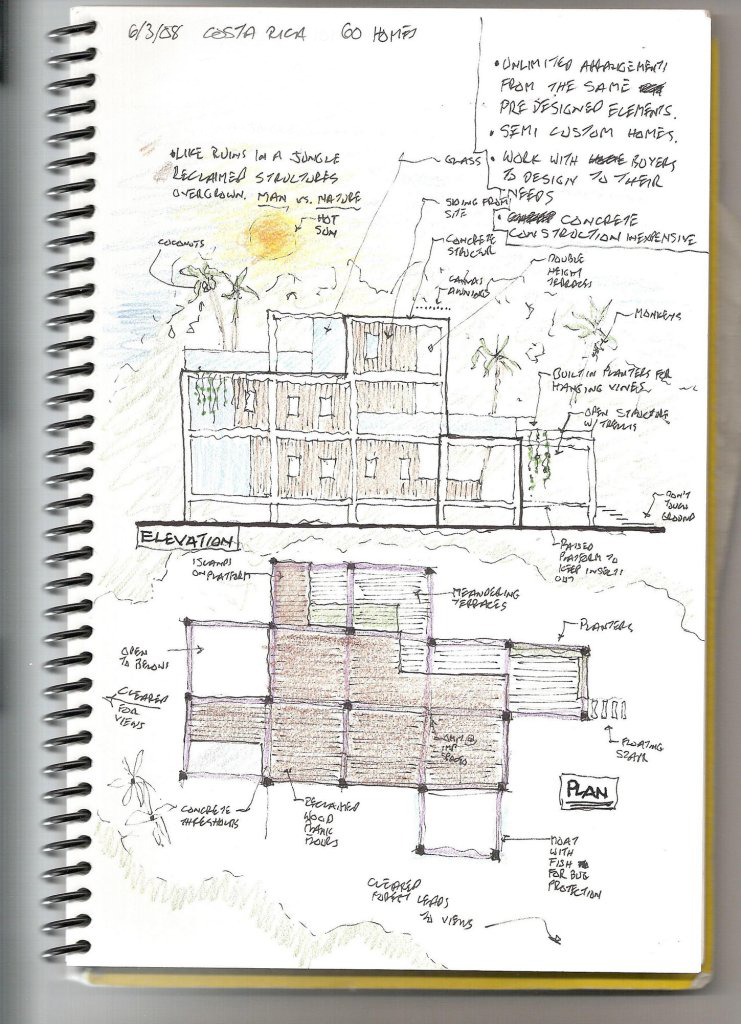 6/3/08 COSTA RICA 60 HOMES
• UNLIMITED ARRANGEMENTS
FROM THE SAME
PRE DESIGNED ELEMENTS.
• SEMI CUSTOM HOMES.
• WORK WITH BUYERS
TO DESIGN TO THEIR
NEEDS
• CONCRETE
CONSTRUCTION INEXPENSIVE
• LIKE RUINS IN A JUNGLE
RECLAIMED STRUCTURES
OVERGROWN. MAN VS. NATURE
HOT
SUN
COCONUTS
GLASS
SIDING FROM
SITE
CONCRETE
STRUCTUR
CANVAS
AWNINGS
DOUBLE
HEIGHT
TERRACES
MONKEYS
BUILT IN PLANTERS FOR
HANGING VINES
OPEN STRUCTURE
W/ TRELLIS
DON'T
TOUCH
GROUND
ELEVATION
RAISED
PLATFORM TO
KEEP INSECTS
OUT
ISLANDS
ON PLATFORM
MEANDERING
TERRACES
PLANTERS
OPEN
TO BELOW
CLEARED
FOR
VIEWS
FLOATING
STAIR
PLAN
CONCRETE
THRESHOLDS
RECLAIMED
WOOD
FLOORS
MOAT
WITH
FISH
FOR BUG
PROTECTION
CLEARED
FOREST LEADS
TO VIEWS